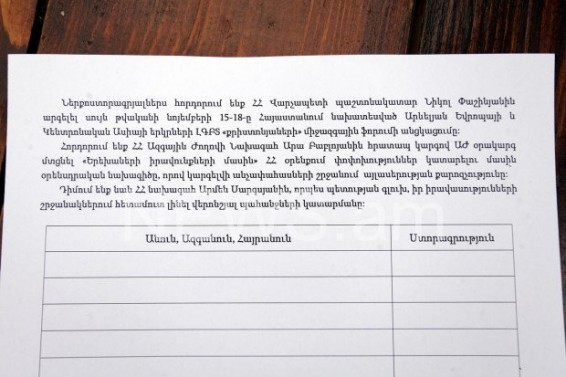 Ներքոստորագրյալներս հորդորում ենք ՀՀ Վարչապետի պաշտոնակատար Նիկոլ Փաշինյանին
արգելել սույն թվականի նոյեմբերի 15-18-ը Հայաստանում նախատեսված Արևելյան Եվրոպայի և
Կենտրոնական Ասիայի երկրների ԼԳԲՏ «քրիստոնյաների» միջազգային ֆորումի անցկացումը:
Հորդորում ենք ՀՀ Ազգային Ժողովի Նախագահ Արա Բաբլոյանին հրատապ կարգով ԱԺ օրակարգ
մտցնել «Երեխաների իրավունքների մասին» ՀՀ օրենքում փոփոխություններ կատարելու մասին
օրենսդրական նախագիծը, որով կարգելվի անչափահասների շրջանում այլասերության քարոզչությունը:
Դիմում ենք նաև ՀՀ նախագահ Արմեն Սարգսյանին, որպես պետության գլուխ, իր իրավասությունների
շրջանակներում հետամուտ լինել վերոնշյալ պահանջների կատարմանը:
news.am
Անուն, Ազգանուն, Հայրանուն Ստորագրություն